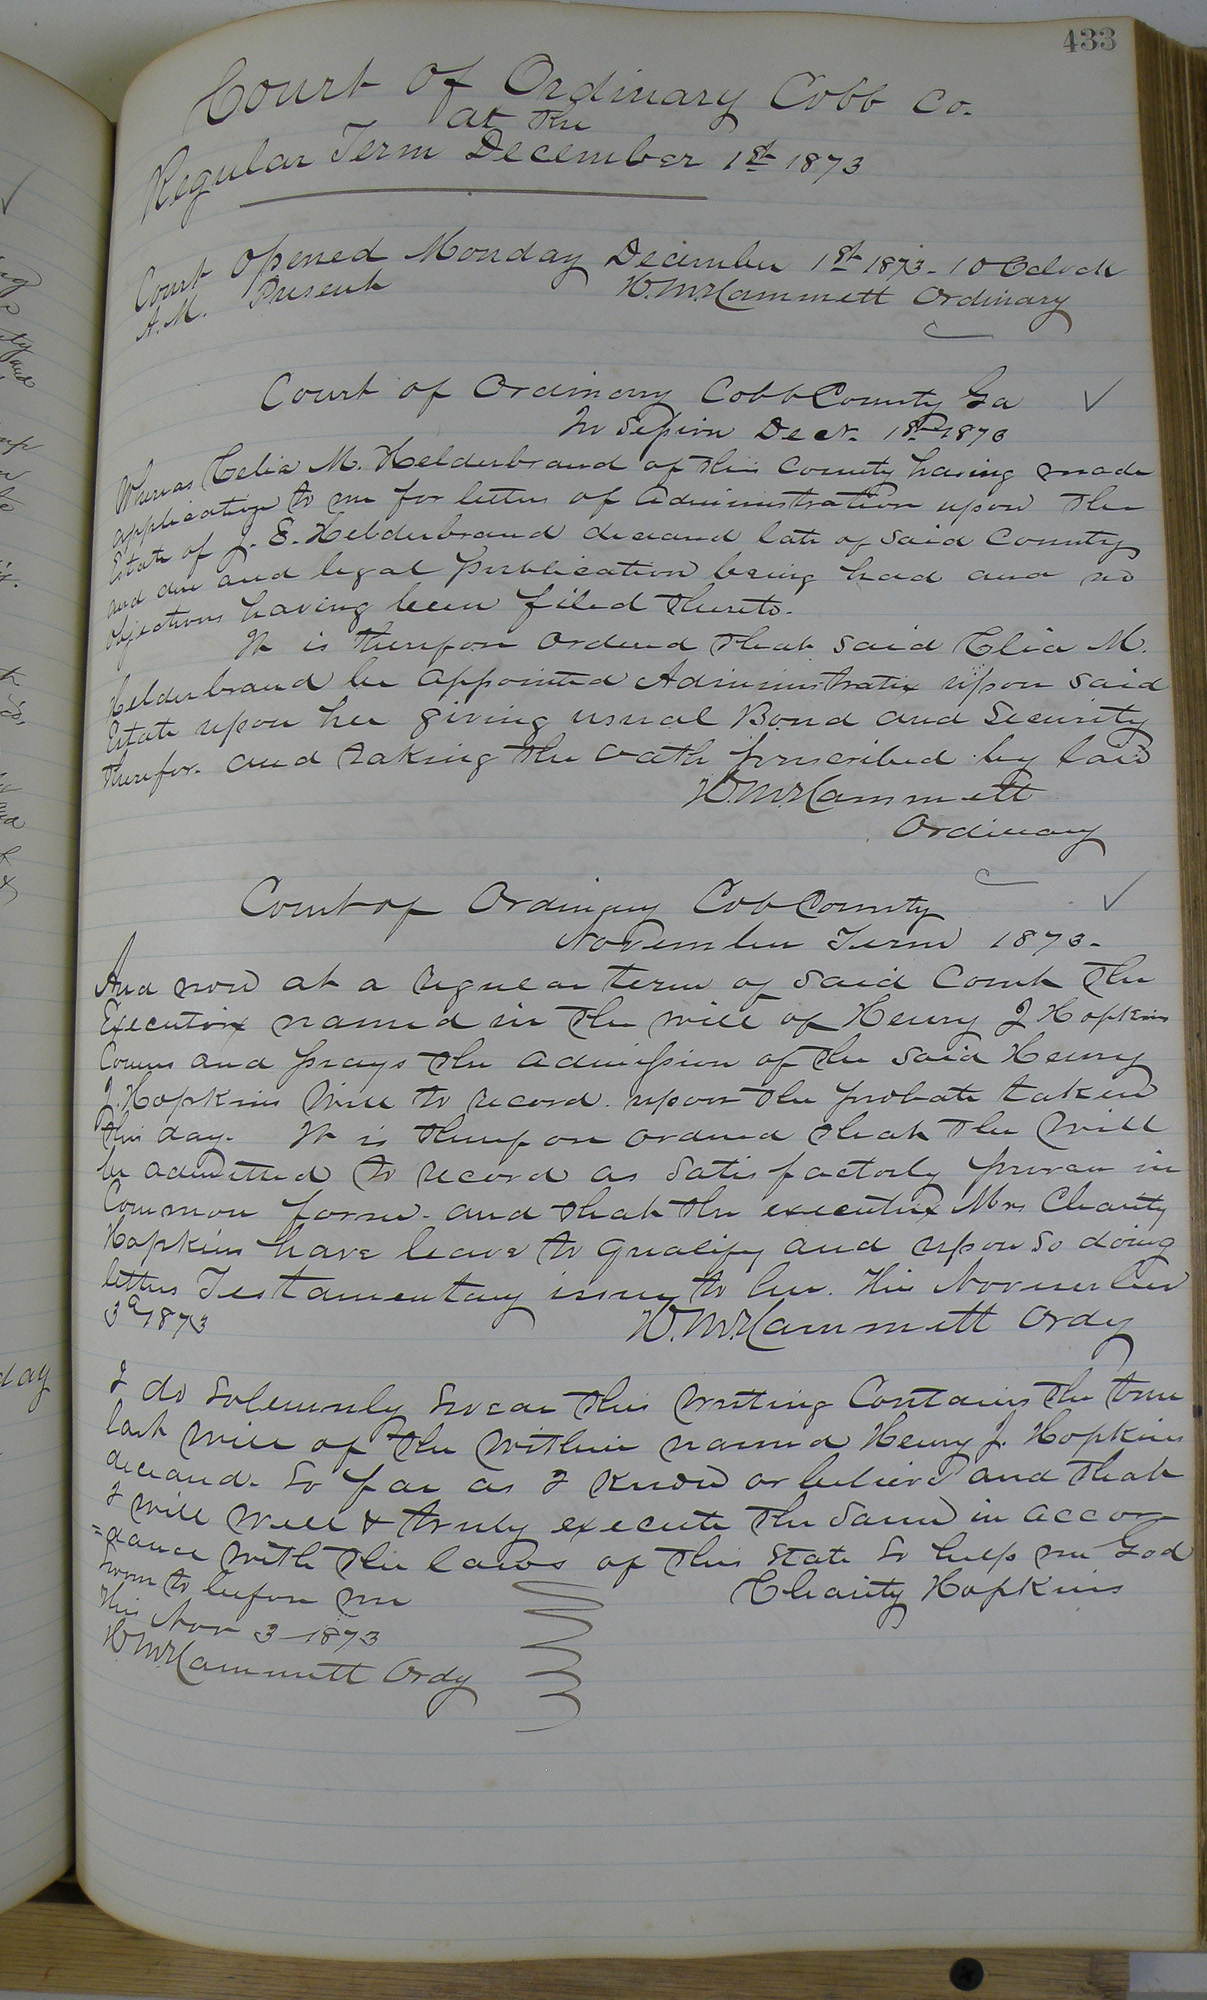 433
Court of Ordinary Cobb Co.
at the
Regular Term December 1st 1873
Court opened Monday December 1st 1873. 10 Oclock
A.M. Present W. M. Hammett Ordinary
Court of Ordinary Cobb County Ga
In Session Decr. 1st 1873
Whereas Celia M. Helderbrand of this County having made
application to me for letters of Administration upon the
Estate of J. E. Helderbrand deceased late of Said County
and due and legal Publication being had and no
objections having been filed thereto.
It is therefore ordered that said Celia M.
Helderbrand be appointed Administratrix upon said
Estate upon her giving usual Bond and Security
therefor. and taking the oath prescribed by law
W. M. Hammett
Ordinary
Court of Ordinary Cobb County
November Term 1873.
And now at a regular term of said Court the
Executrix named in the will of Henry J Hopkins
Comes and prays the admission of the said Henry
J. Hopkins Will to record upon the probate taken
this day. It is thereupon ordered that the Will
be admitted to record as satisfactorly proven in
Common form. and that the executrix Mrs Charity
Hopkins have leave to qualify and upon so doing
letters Testamentary issue to her. This November
3d 1873 W. M. Hammett Ordy
I do Solemnly Swear this writing Contains the true
last will of the within named Henry J. Hopkins
deceased. So far as I know or believe and that
I will well & truly execute the same in accor
=dance with the laws of this State So help me God
Sworn to before me Charity Hopkins
this Nov 3 1873
W. M. Hammett Ordy
day